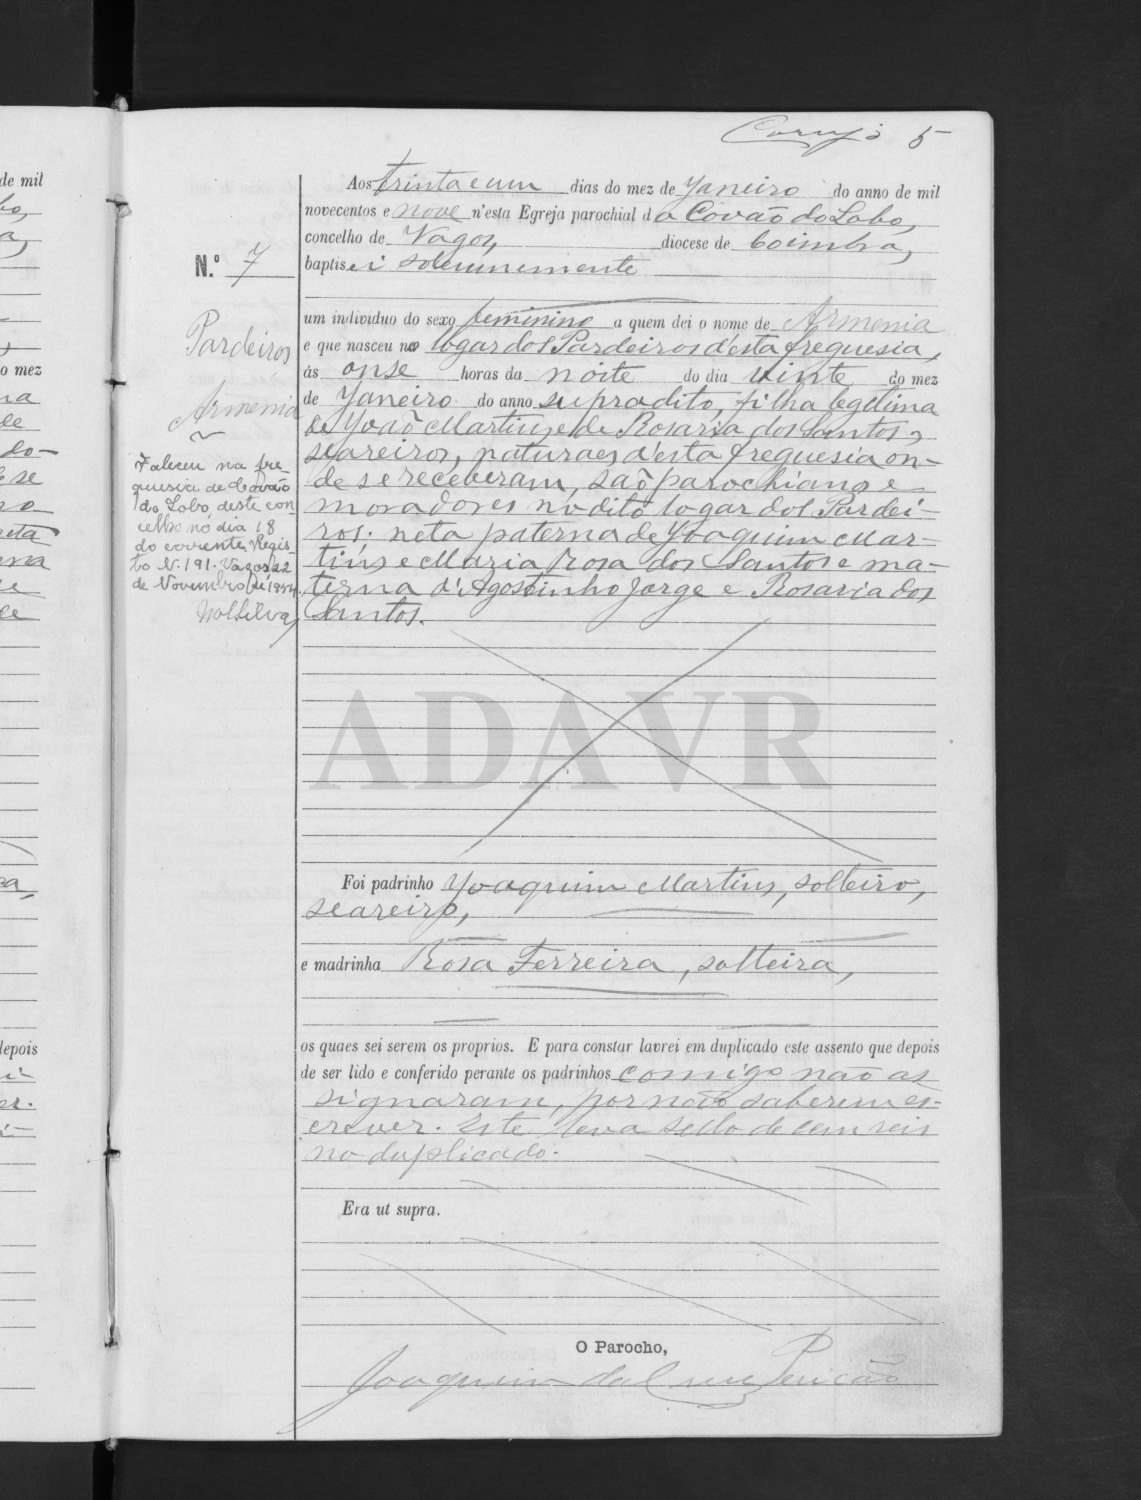 5
Aos trinta e um dias do mez de Janeiro do anno de mil
novecentos e nove n'esta Egreja parochial do Covão do Lobo,
concelho de Vagos, diocese de Coimbra,
baptisei solemnemente
um individuo do sexo feminino a quem dei o nome de Armenia
e que nasceu no logar dos Pardeiros d'esta freguesia,
ás onse horas da noite do dia vinte do mez
de Janeiro do anno supradito, filha legitima
de João Martins e de Rosaria dos Santos,
seareiros, naturaes d'esta freguesia on-
de se receberam, são parochianos e
moradores no dito logar dos Pardei-
ros: neta paterna de Joaquim Mar-
tins e Maria Rosa dos Santos e ma-
terna d'Agostinho Jorge e Rosaria dos
Santos.
N.º 7
Pardeiros
Armenia
Faleceu na fre-
guesia de Covão
do Lobo, deste con-
celho no dia 18
do corrente. Regis-
to N. 191. Vagos, 22
de Novembro de
ADAVR
Foi padrinho Joaquim Martins, solteiro,
seareiro,
e madrinha Rosa Ferreira, solteira,
os quaes sei serem os proprios. E para constar lavrei em duplicado este assento que depois
de ser lido e conferido perante os padrinhos comigo não as
signaram, por não saberem es-
crever. Este leva sello de cem reis
no duplicado.
Era ut supra.
O Parocho,
Joaquim da